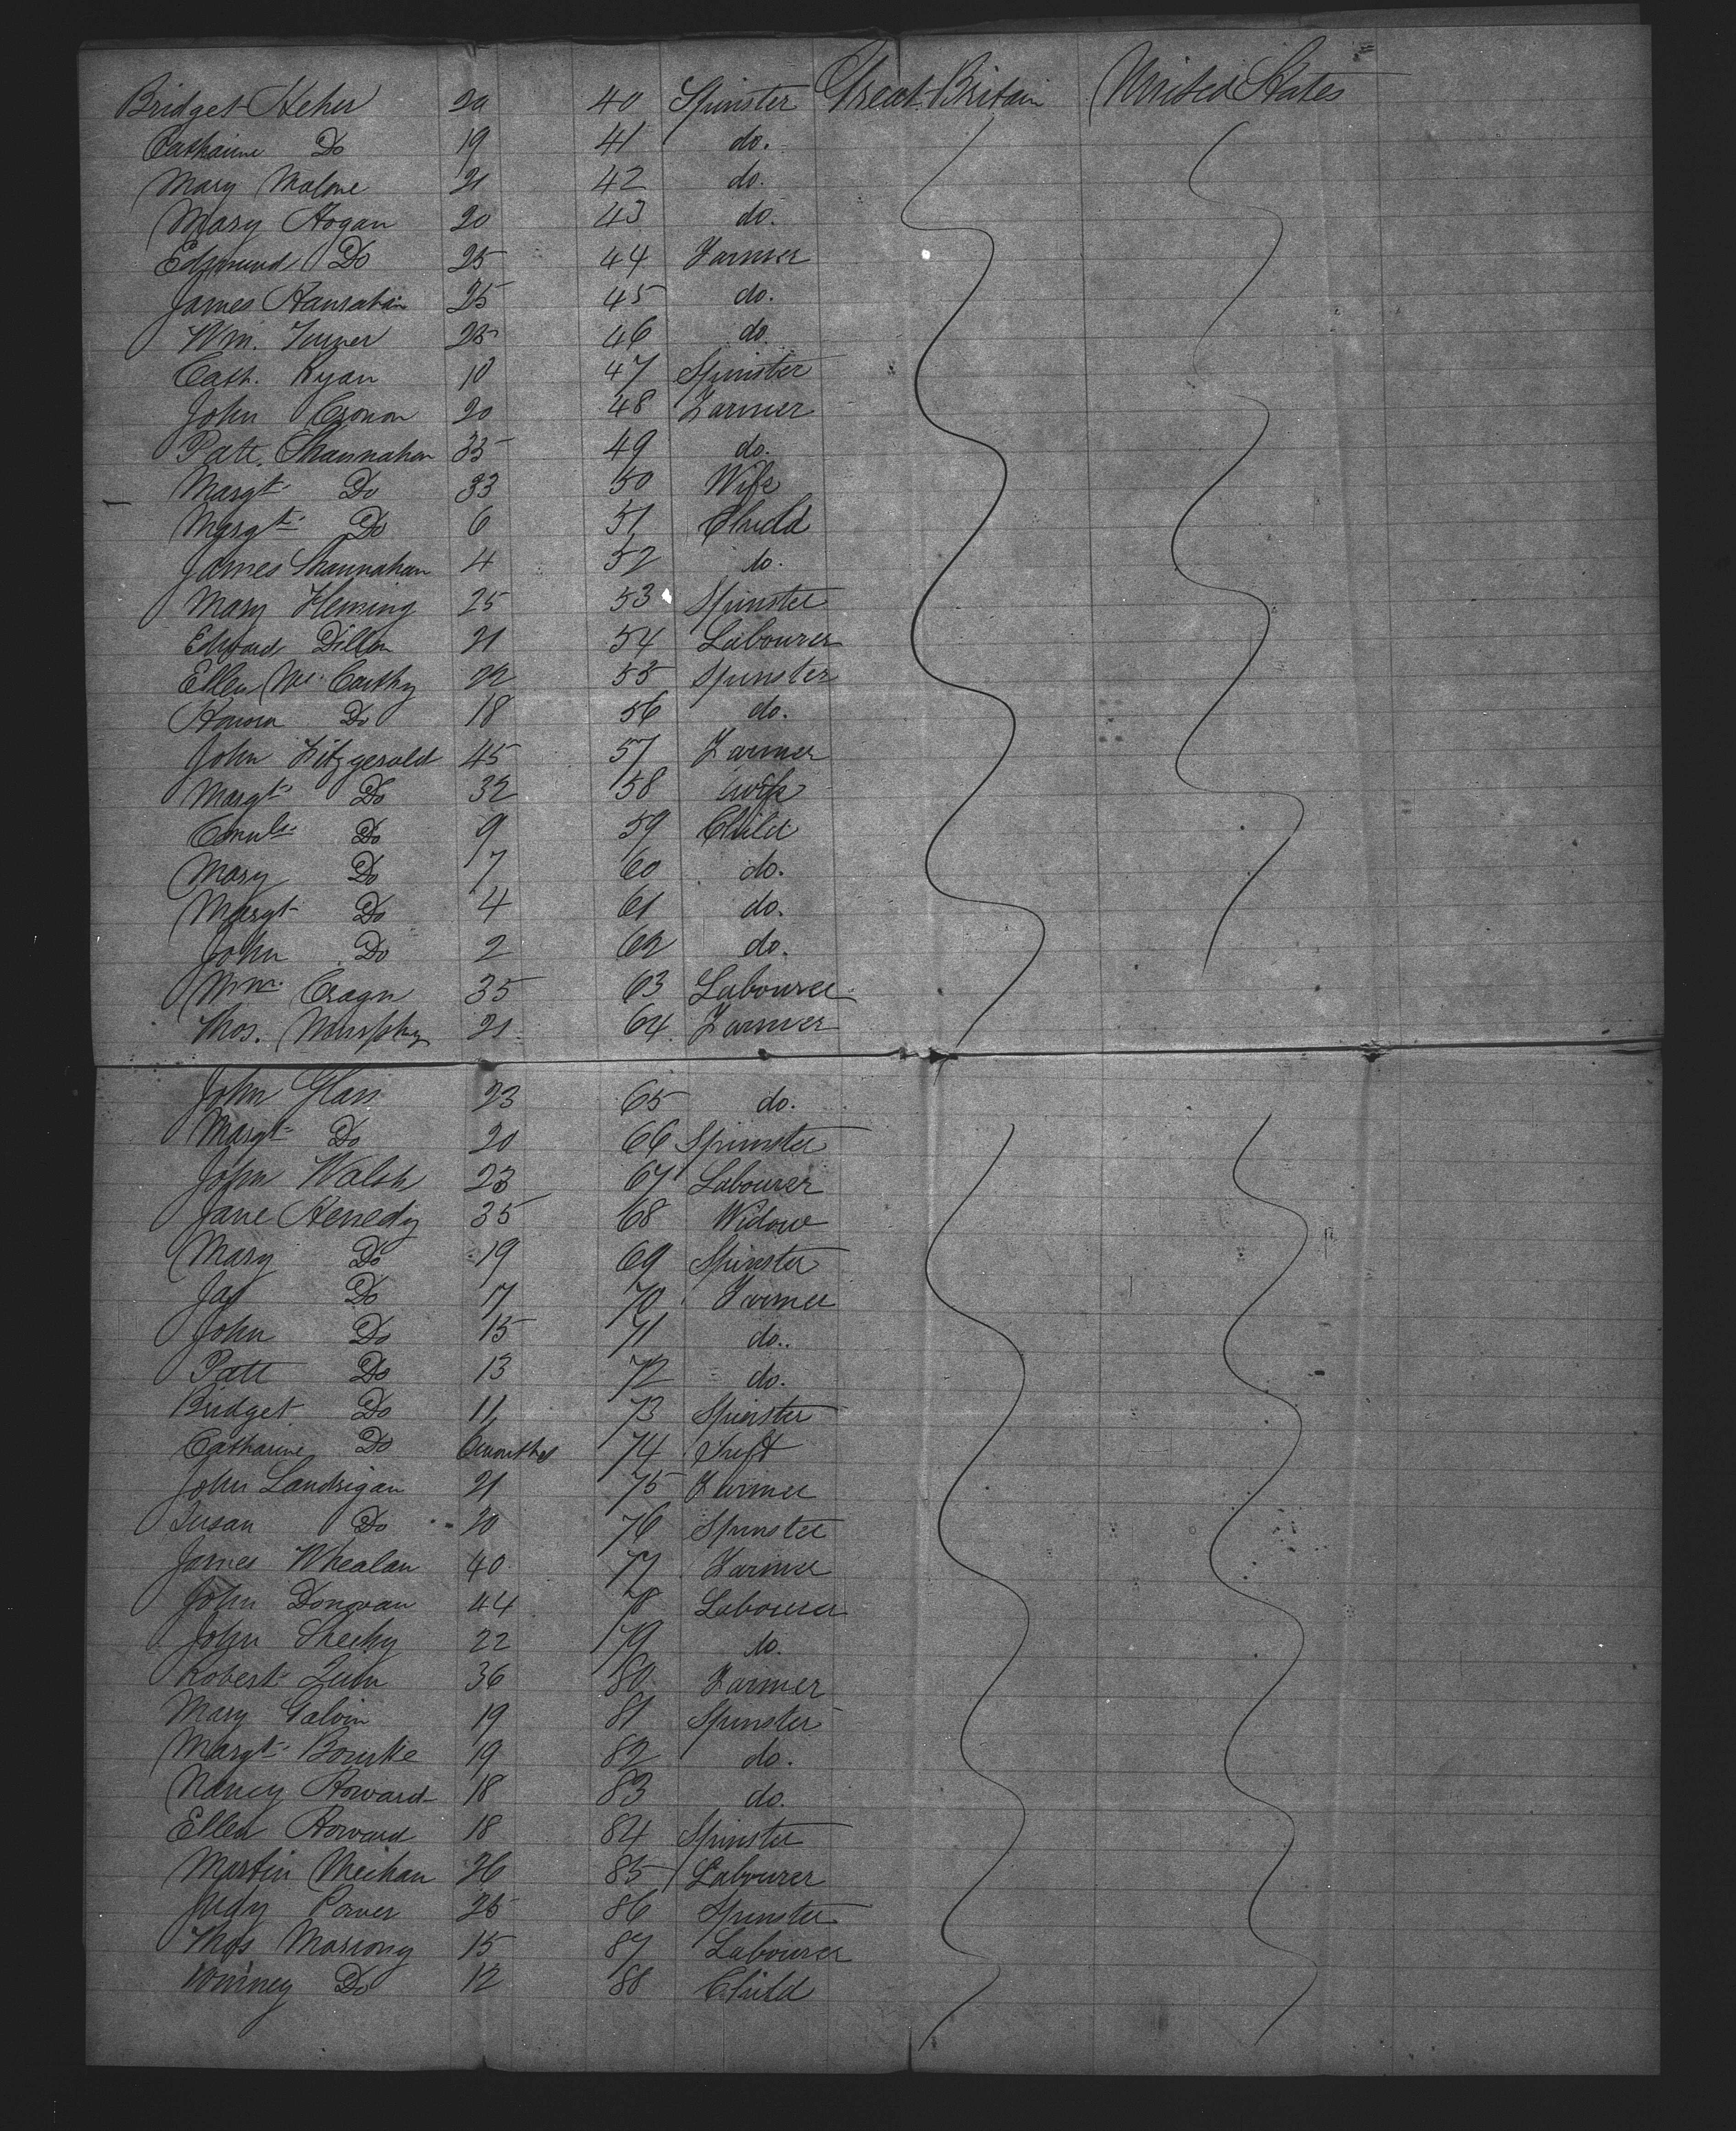 Bridget Keher 20 40 Spinster Great Britain United States
Catharine Do 19 41 do.
Mary Malone 21 42 do.
Mary Hogan 20 43 do.
Edmund Do 25 44 Farmer
James Hanrahan 25 45 do.
Wm. Turner 23 46 do.
Cath. Ryan 10 47 Spinster
John Cronon 20 48 Farmer
Patt. Shannahan 35 49 do.
Margt. Do 33 50 Wife
Margt. Do 6 51 Child
James Shannahan 4 52 do.
Mary Fleming 25 53 Spinster
Edward Dillon 21 54 Labourer
Ellen Mc. Carthy 22 55 Spinster
Honora Do 18 56 do.
John Fitzgerald 45 57 Farmer
Margt. Do 32 58 wife
Do 9 59 Child
Mary Do 7 60 do.
Margt Do 4 61 do.
John Do 2 62 do.
Wm. Cragn 35 63 Labourer
Thos. Murphy 21 64 Farmer
John Glass 23 65 do.
Margt Do 20 66 Spinster
John Walsh 23 67 Labourer
Jane Kenedy 35 68 Widow
Mary Do 19 69 Spinster
Jas Do 17 70 Farmer
John Do 15 71 do..
Patt Do 13 72 do.
Bridget Do 11 73 Spinster
Catharine Do 6 months 74 Inft
John Landrigan 21 75 Farmer
Susan Do 20 76 Spinster
James Whealan 40 77 Farmer
John Donovan 44 78 Labourer
John Sheehy 22 79 do.
Robert 36 80 Farmer
Mary Galvin 19 81 Spinster
Margt. Bourke 19 82 do.
Nancy Howard 18 83 do.
Ellen Howard 18 84 Spinster
Martin Meihan 26 85 Labourer
Judy Power 25 86 Spinster
Thos Marrony 15 87 Labourer
Winney Do 12 88 Child